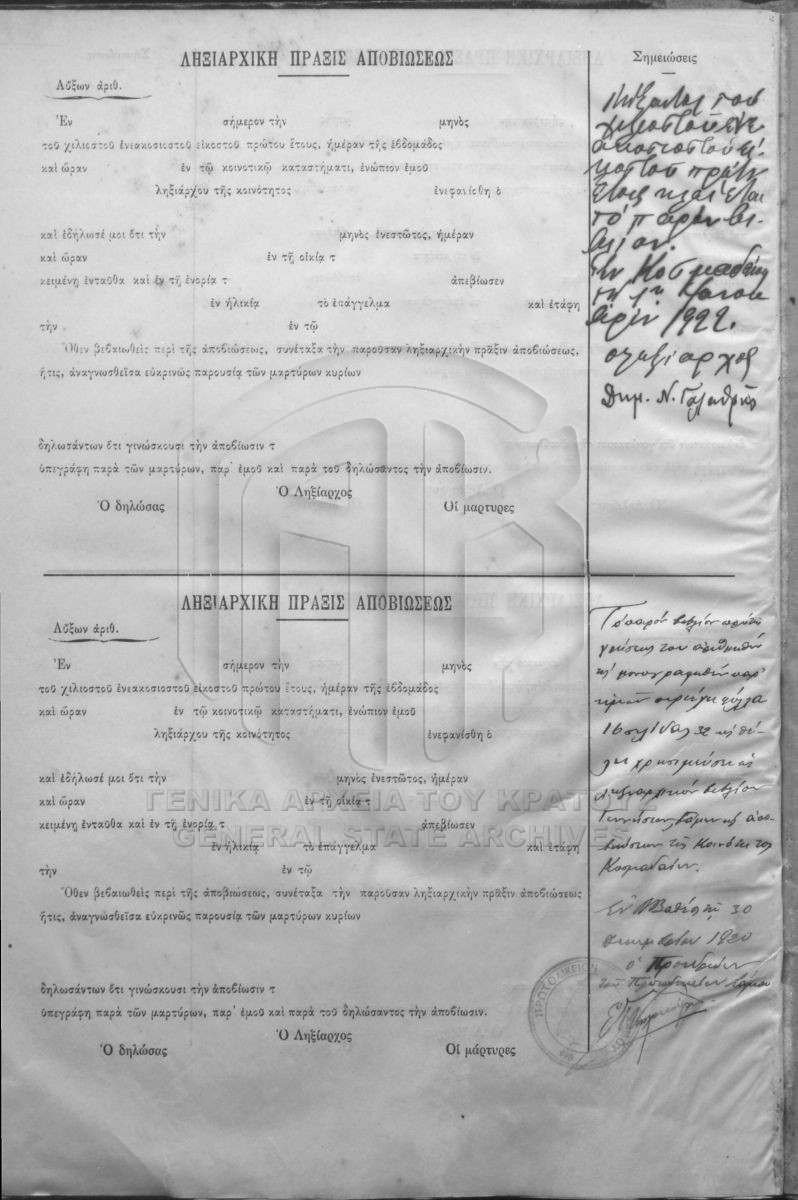 ΛΗΞΙΑΡΧΙΚΗ ΠΡΑΞΙΣ ΑΠΟΒΙΩΣΕΩΣ
Σημειώσεις
Αὔξων ἀριθ.
Ἐν σήμερον τὴν μηνὸς
τοῦ χιλιοστοῦ ἐνεακοσιοστοῦ εἰκοστοῦ πρώτου ἔτους, ἡμέραν τῆς ἑβδομάδος
καὶ ὥραν ἐν τῷ κοινοτικῷ καταστήματι, ἐνώπιον ἐμοῦ
ληξιάρχου τῆς κοινότητος ἐνεφανίσθη ὁ
καὶ ἐδήλωσέ μοι ὅτι τὴν μηνὸς ἐνεστῶτος, ἡμέραν
καὶ ὥραν ἐν τῇ οἰκίᾳ τ
κειμένῃ ἐνταῦθα καὶ ἐν τῇ ἐνορίᾳ τ ἀπεβίωσεν
ἐν ἡλικίᾳ τὸ ἐπάγγελμα καὶ ἐτάφη
τὴν ἐν τῷ
Ὅθεν βεβαιωθεὶς περὶ τῆς ἀποβιώσεως, συνέταξα τὴν παροῦσαν ληξιαρχικὴν πρᾶξιν ἀποβιώσεως,
ἥτις, ἀναγνωσθεῖσα εὐκρινῶς παρουσίᾳ τῶν μαρτύρων κυρίων
δηλωσάντων ὅτι γινώσκουσι τὴν ἀποβίωσιν τ
ὑπεγράφη παρὰ τῶν μαρτύρων, παρ' ἐμοῦ καὶ παρὰ τοῦ δηλώσαντος τὴν ἀποβίωσιν.
Ὁ Ληξίαρχος
Ὁ δηλώσας Οἱ μάρτυρες
του
πρώτου
ἔτους κλείεται
τὸ παρὸν βι-
βλίον.
Ἐν Κοσμαδαίοις
τῇ 1ῃ Ἰανου-
αρίου 1922.
ὁ ληξίαρχος
Δημ. Ν.
ΛΗΞΙΑΡΧΙΚΗ ΠΡΑΞΙΣ ΑΠΟΒΙΩΣΕΩΣ
Αὔξων ἀριθ.
Ἐν σήμερον τὴν μηνὸς
τοῦ χιλιοστοῦ ἐνεακοσιοστοῦ εἰκοστοῦ πρώτου ἔτους, ἡμέραν τῆς ἑβδομάδος
καὶ ὥραν ἐν τῷ κοινοτικῷ καταστήματι, ἐνώπιον ἐμοῦ
ληξιάρχου τῆς κοινότητος ἐνεφανίσθη ὁ
καὶ ἐδήλωσέ μοι ὅτι τὴν μηνὸς ἐνεστῶτος, ἡμέραν
καὶ ὥραν ἐν τῇ οἰκίᾳ τ
κειμένῃ ἐνταῦθα καὶ ἐν τῇ ἐνορίᾳ τ ἀπεβίωσεν
ἐν ἡλικίᾳ τὸ ἐπάγγελμα καὶ ἐτάφη
τὴν ἐν τῷ
Ὅθεν βεβαιωθεὶς περὶ τῆς ἀποβιώσεως, συνέταξα τὴν παροῦσαν ληξιαρχικὴν πρᾶξιν ἀποβιώσεως
ἥτις, ἀναγνωσθεῖσα εὐκρινῶς παρουσίᾳ τῶν μαρτύρων κυρίων
δηλωσάντων ὅτι γινώσκουσι τὴν ἀποβίωσιν τ
ὑπεγράφη παρὰ τῶν μαρτύρων, παρ' ἐμοῦ καὶ παρὰ τοῦ δηλώσαντος τὴν ἀποβίωσιν.
Ὁ Ληξίαρχος
Ὁ δηλώσας Οἱ μάρτυρες
Τὸ παρὸν βιβλίον
ἀριθμηθὲν
μονογραφηθὲν παρ'
ἡμῶν φύλλα
16 σελίδας 32
χρησιμεύσῃ ὡς
ληξιαρχικὸν βιβλίον
Γεννήσεων, γάμων
τῆς Κοινότητος
Κοσμαδαίων.
Ἐν Βαθέι τῇ 30
Δεκεμβρίου 1920
ὁ Πρόεδρος
τῶν Πρωτοδικῶν Σάμου
ΠΡΩΤΟΔΙΚΕΙΟΝ
ΓΕΝΙΚΑ ΑΡΧΕΙΑ ΤΟΥ ΚΡΑΤΟΥΣ
GENERAL STATE ARCHIVES